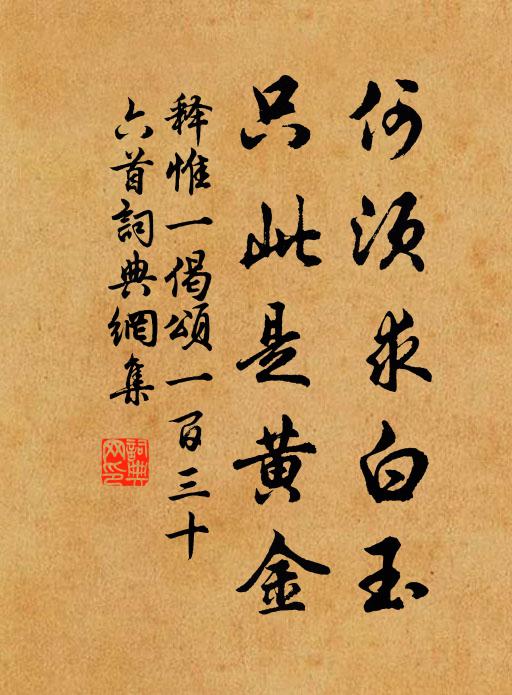 何須求白玉
只此是黄金
释惟一偈頌一百三十
六首詞典網集
詞典网印